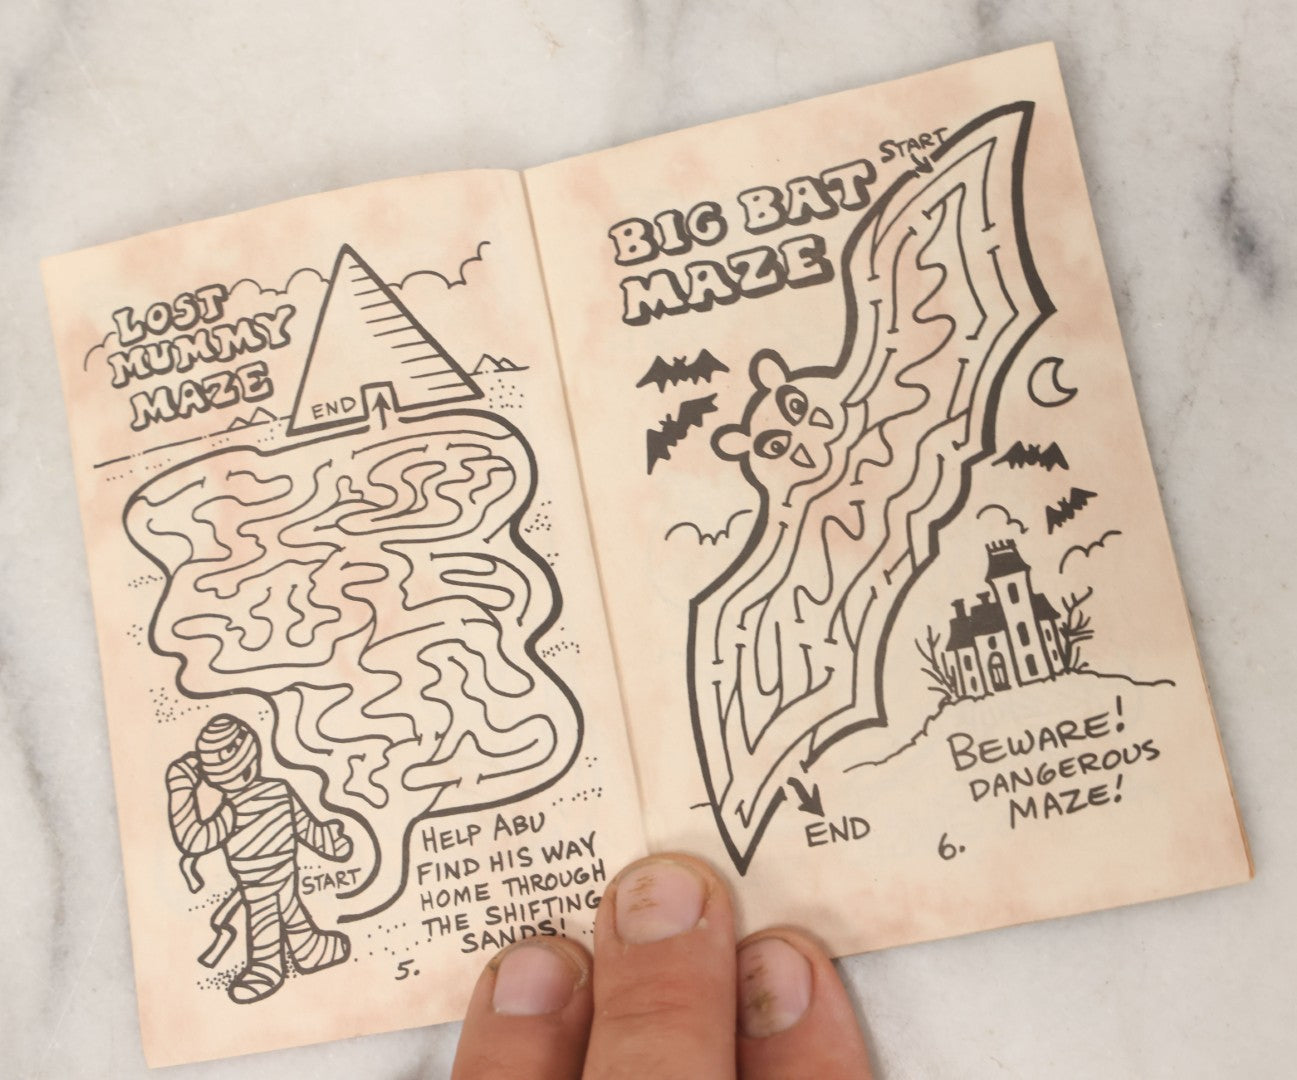 LOST
MUMMY
MAZE
END
START
HELP ABU
FIND HIS WAY
HOME THROUGH
THE SHIFTING
SANDS!
5.
BIG BAT
MAZE
START
BEWARE!
DANGEROUS
MAZE!
END
6.